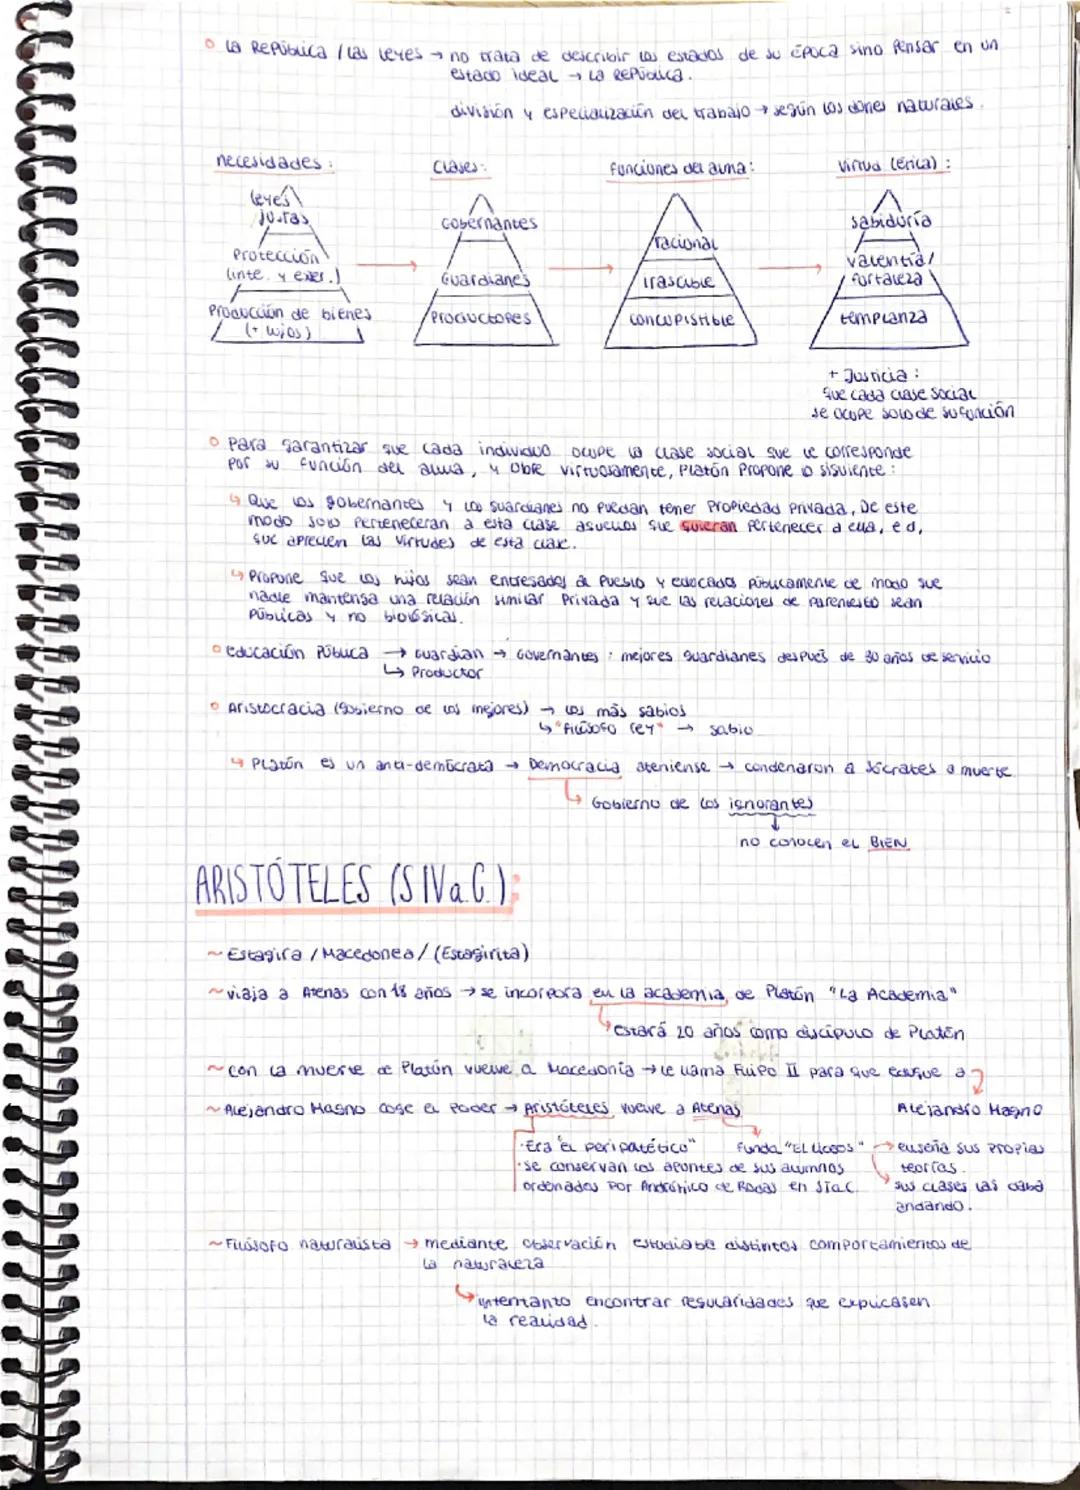 ° La República / Las Leyes → no trata de describir los estados de su época sino pensar en un
estado ideal → La República.
división y especialización del trabajo → según los dones naturales.
necesidades:
leyes
justas
Protección
(inte. y exter.)
Producción de bienes
(+ lujos)
Clases:
Gobernantes
Guardianes
Productores
Funciones del alma:
racional
irascible
concupistible
Virtud (ética):
sabiduría
valentía/
fortaleza
templanza
+ Justicia:
que cada clase social
se ocupe solo de su función
° Para garantizar que cada individuo ocupe la clase social que le corresponde
por su función del alma, y obre virtuosamente, Platón propone lo siguiente:
↳ Que los gobernantes y los guardianes no puedan tener propiedad privada, De este
modo solo perteneceran a esta clase aquellos que quieran pertenecer a ella, e.d,
que aprecien las virtudes de esta clase.
↳ Propone que los hijos sean entregados al pueblo y educados públicamente de modo que
nadie mantenga una relación similar privada y que las relaciones de parentesco sean
públicas y no biológicas.
° educación Pública → Guardian → Governantes: mejores guardianes después de 30 años de servicio
↳ Productor
° Aristocracia (gobierno de los mejores) → los más sabios
↳ "Filósofo rey" → sabio
↳ Platón es un anti-demócrata → Democracia ateniense → condenaron a Sócrates a muerte
↳ Gobierno de los ignorantes
↓
no conocen el BIEN
ARISTÓTELES (S IV a.C.):
~ Estagira / Macedonea / (Estagirita)
~ viaja a Atenas con 18 años → se incorpora en la academia de Platón "La Academia"
↳ estará 20 años como discípulo de Platón
~ con la muerte de Platón vuelve a Macedonia → le llama Filipo II para que eduque a
Alejandro Magno
~ Alejandro Magno coge el poder → Aristóteles vuelve a Atenas
· Era "el peripatético"
· se conservan los apuntes de sus alumnos
ordenados por Andrónico de Rodas en S I a.C.
Funda "El Liceos" → enseña sus propias
teorías.
sus clases las daba
andando.
~ Filósofo naturalista → mediante observación estudiaba distintos comportamientos de
la naturaleza
↳ intentanto encontrar regularidades que explicasen
la realidad.